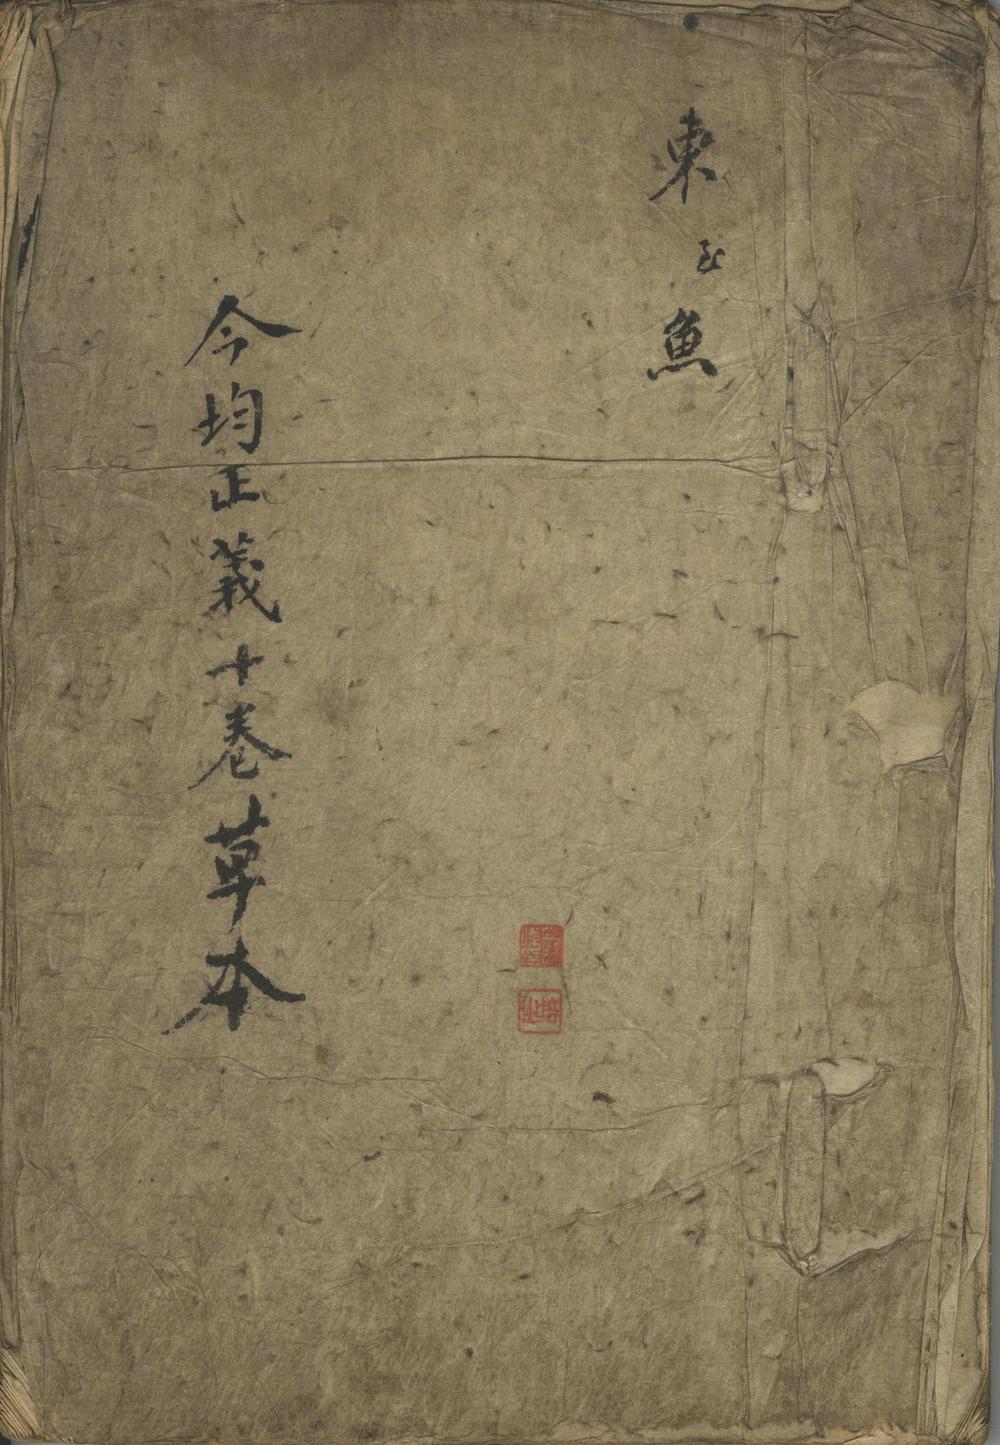 東至魚
今均正義十卷草本